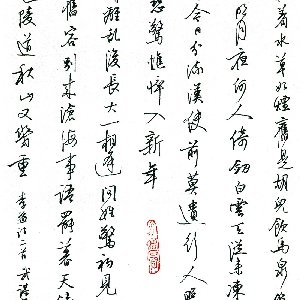 著水草如煙舊是胡兒飲馬泉
明月夜何人倚劍白雲天從來凍
今日分流漢使前莫遣行人照
恐驚憔悴入新年
離亂後長大一相逢問姓驚初見
舊容別來滄海事語罷暮天
巴陵道秋山又幾重
李益詩二首